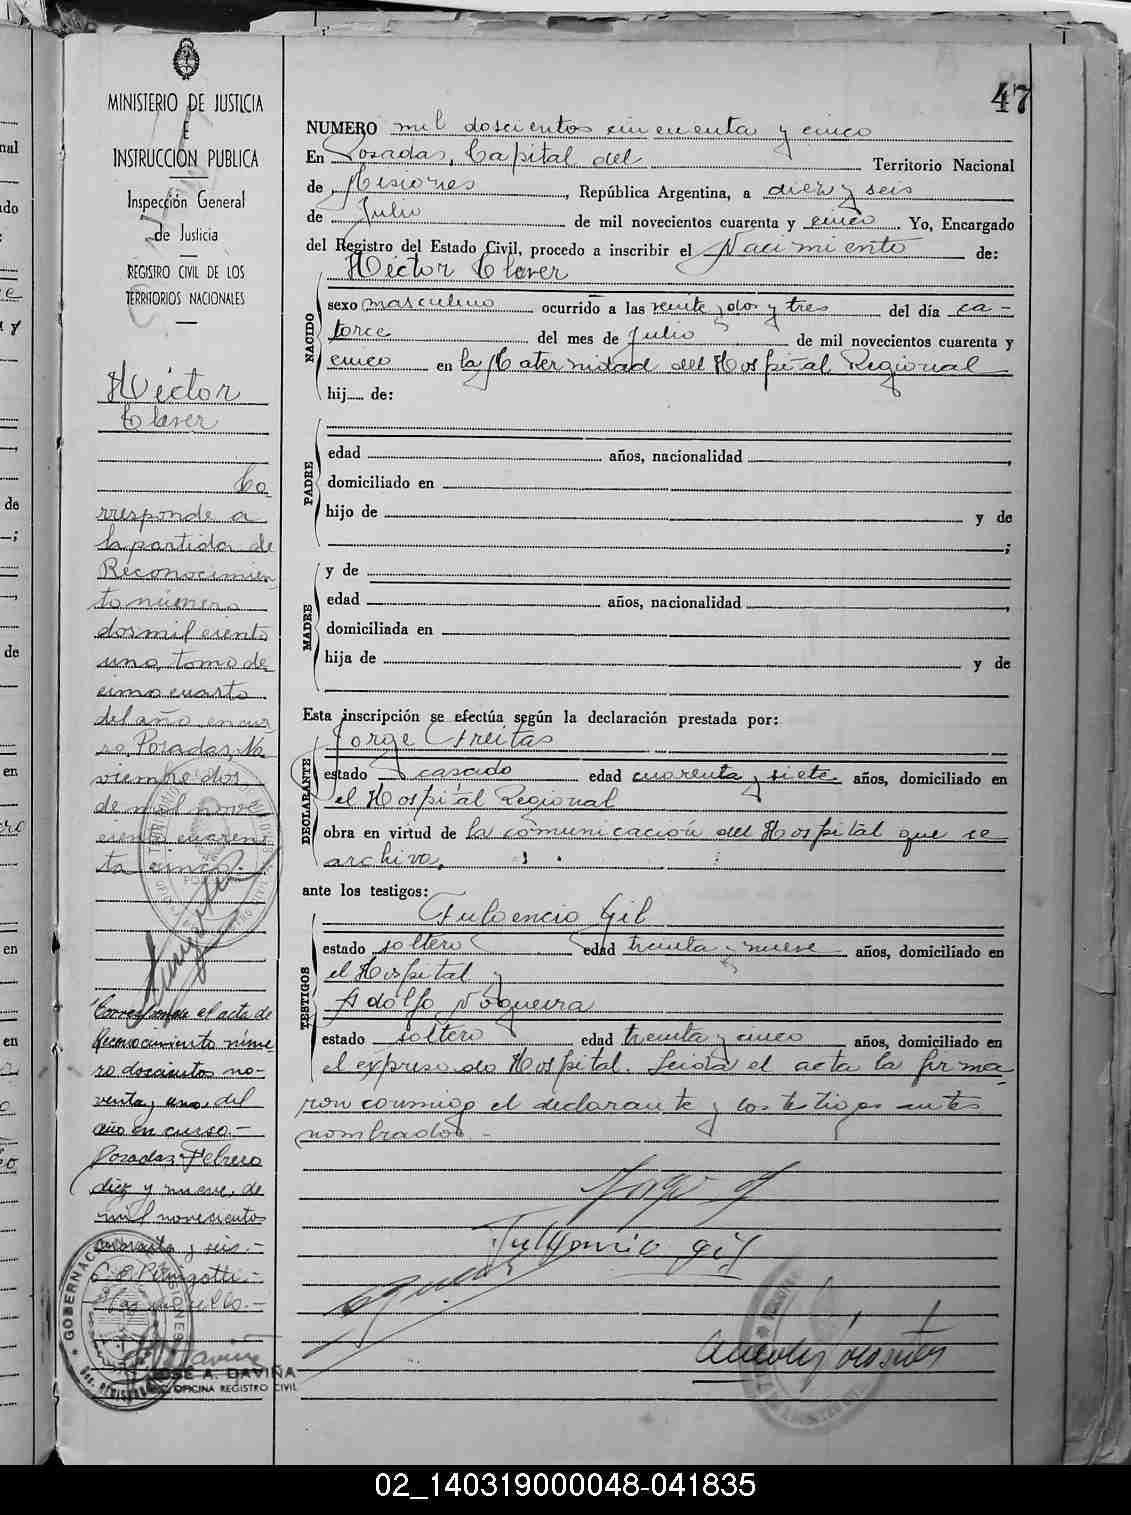 MINISTERIO DE JUSTICIA
E
INSTRUCCION PUBLICA
Inspección General
de Justicia
REGISTRO CIVIL DE LOS
TERRITORIOS NACIONALES
Héctor
Claver
Co
rresponde a
la partida de
Reconocimien
to número
dos mil ciento
uno, tomo de
cimo cuarto
del año en cur
so, Posadas, No
viembre dos
de mil nove
cientos cuaren
ta cinco.
Corresponde el acta de
Reconocimiento núme-
ro doscientos no-
venta y uno, del
año en curso.-
Posadas, Febrero
diez y nueve, de
mil novecientos
cuarenta y seis.-
JOSE A. DAVIÑA
OFICINA REGISTRO CIVIL
47
NUMERO mil doscientos cincuenta y cinco
En Posadas, Capital del Territorio Nacional
de Misiones, República Argentina, a diez y seis
de Julio de mil novecientos cuarenta y cinco Yo, Encargado
del Registro del Estado Civil, procedo a inscribir el Nacimiento de:
Héctor Claver
NACIDO
sexo masculino ocurrido a las veinte y dos y tres del día ca-
torce del mes de Julio de mil novecientos cuarenta y
cinco en la Maternidad del Hospital Regional
hij..... de:
PADRE
edad años, nacionalidad ,
domiciliado en
hijo de y de
;
MADRE
y de
edad años, nacionalidad ,
domiciliada en
hija de y de
Esta inscripción se efectúa según la declaración prestada por:
DECLARANTE
Jorge Freitas
estado casado edad cuarenta y siete años, domiciliado en
el Hospital Regional
obra en virtud de la comunicación del Hospital que se
archiva.
ante los testigos:
TESTIGOS
Fulgencio Gil
estado soltero edad treinta y nueve años, domiciliado en
el Hospital y
Adolfo Nogueira
estado soltero edad treinta y cinco años, domiciliado en
el expresado Hospital. Leida el acta la firma-
ron conmigo el declarante y los testigos antes
nombrados.-
Fulgencio Gil
02_140319000048-041835